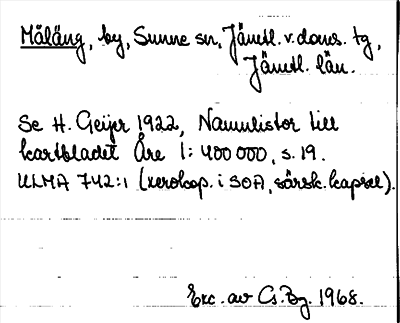 Måläng, by, Sunne sn, Jämtl. v. doms. tg,
Jämtl. län.
Se H. Geijer 1922, Namnlistor till
kartbladet Åre 1:400 000, s. 19.
ULMA 742:1 (xerokop. i SOA, särsk. kapsel).
Exc. av Cs. By. 1968.